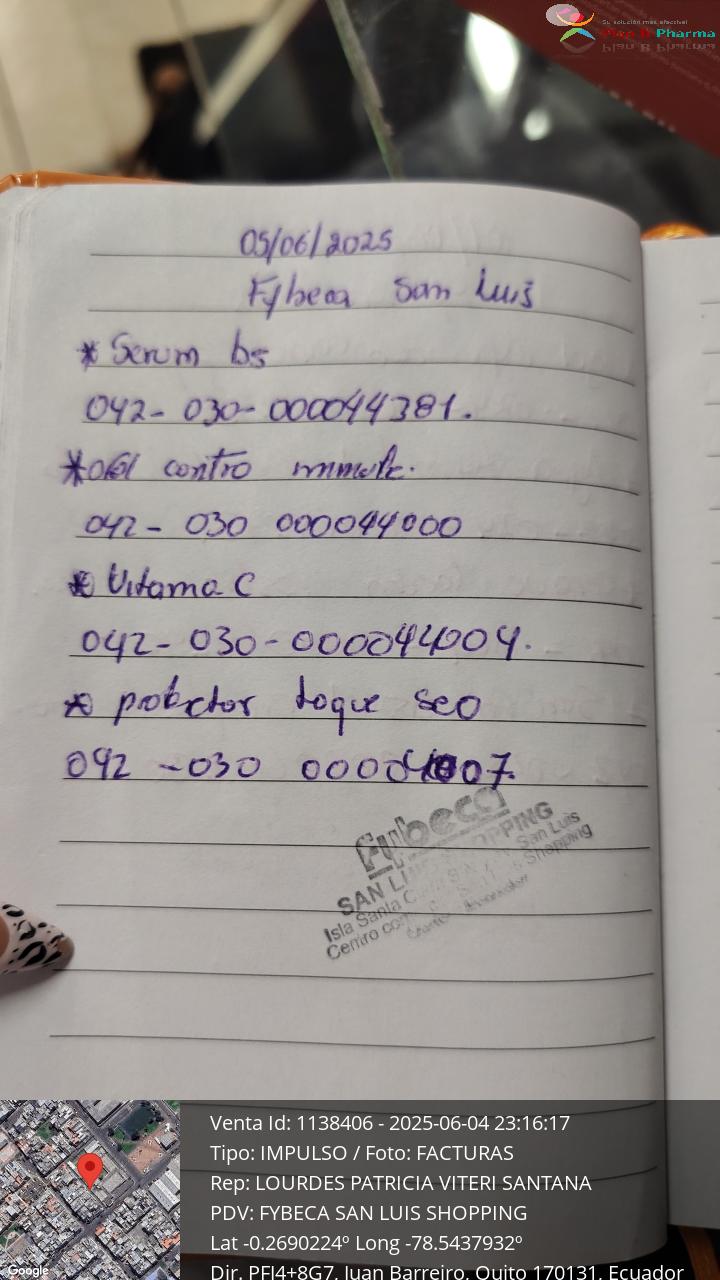 Su solución más efectiva!
Plan B Pharma
05/06/2025
Fybeca San Luis
* Serum b5
042- 030- 000044381.
* contro
042 - 030 000044000
* Vitama C
042- 030- 000044004.
* protector toque seo
042 -030
fybeca
SAN LUIS SHOPPING
Isla Santa San Luis
Centro Shopping
Venta Id: 1138406 - 2025-06-04 23:16:17
Tipo: IMPULSO / Foto: FACTURAS
Rep: LOURDES PATRICIA VITERI SANTANA
PDV: FYBECA SAN LUIS SHOPPING
Lat -0.2690224º Long -78.5437932º
Dir. PFJ4+8G7, Juan Barreiro, Quito 170131, Ecuador
Google